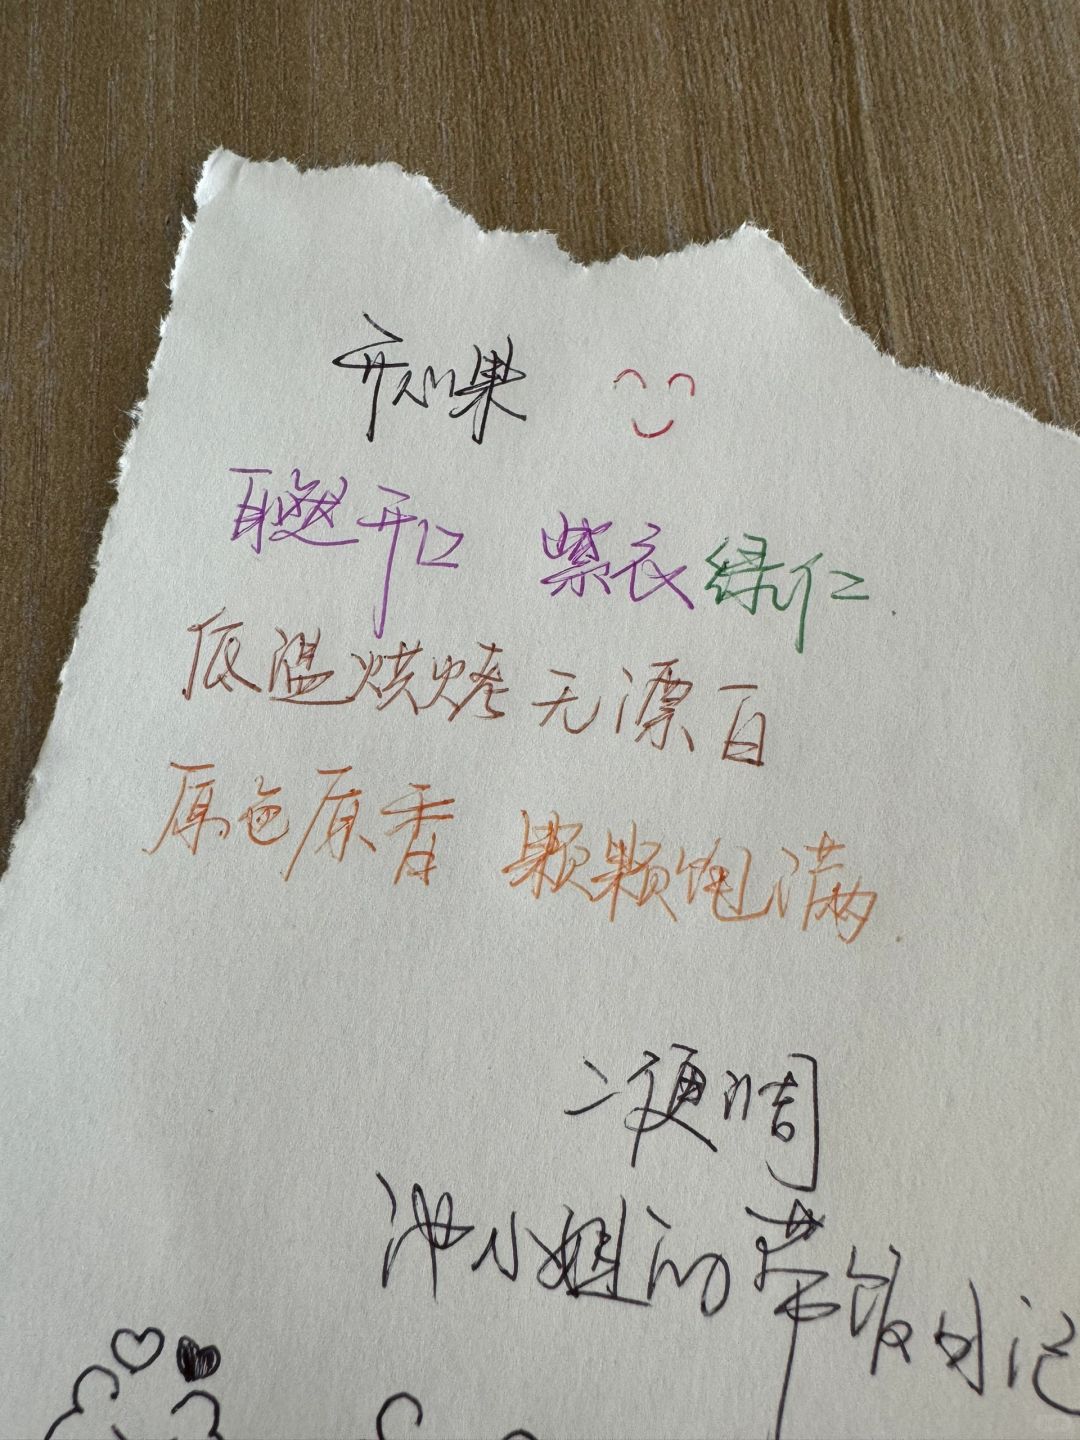 开心果
自然开口 紫衣绿仁
低温烘烤 无漂白
原色原香 颗颗饱满
二硬调
池小姐的带饭日记